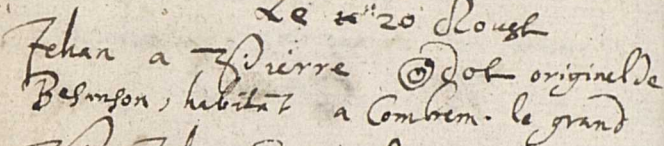 Le 20 Aoust
Jehan a Pierre Odot originel de
Besanson, habitāt a Combrem. le grand